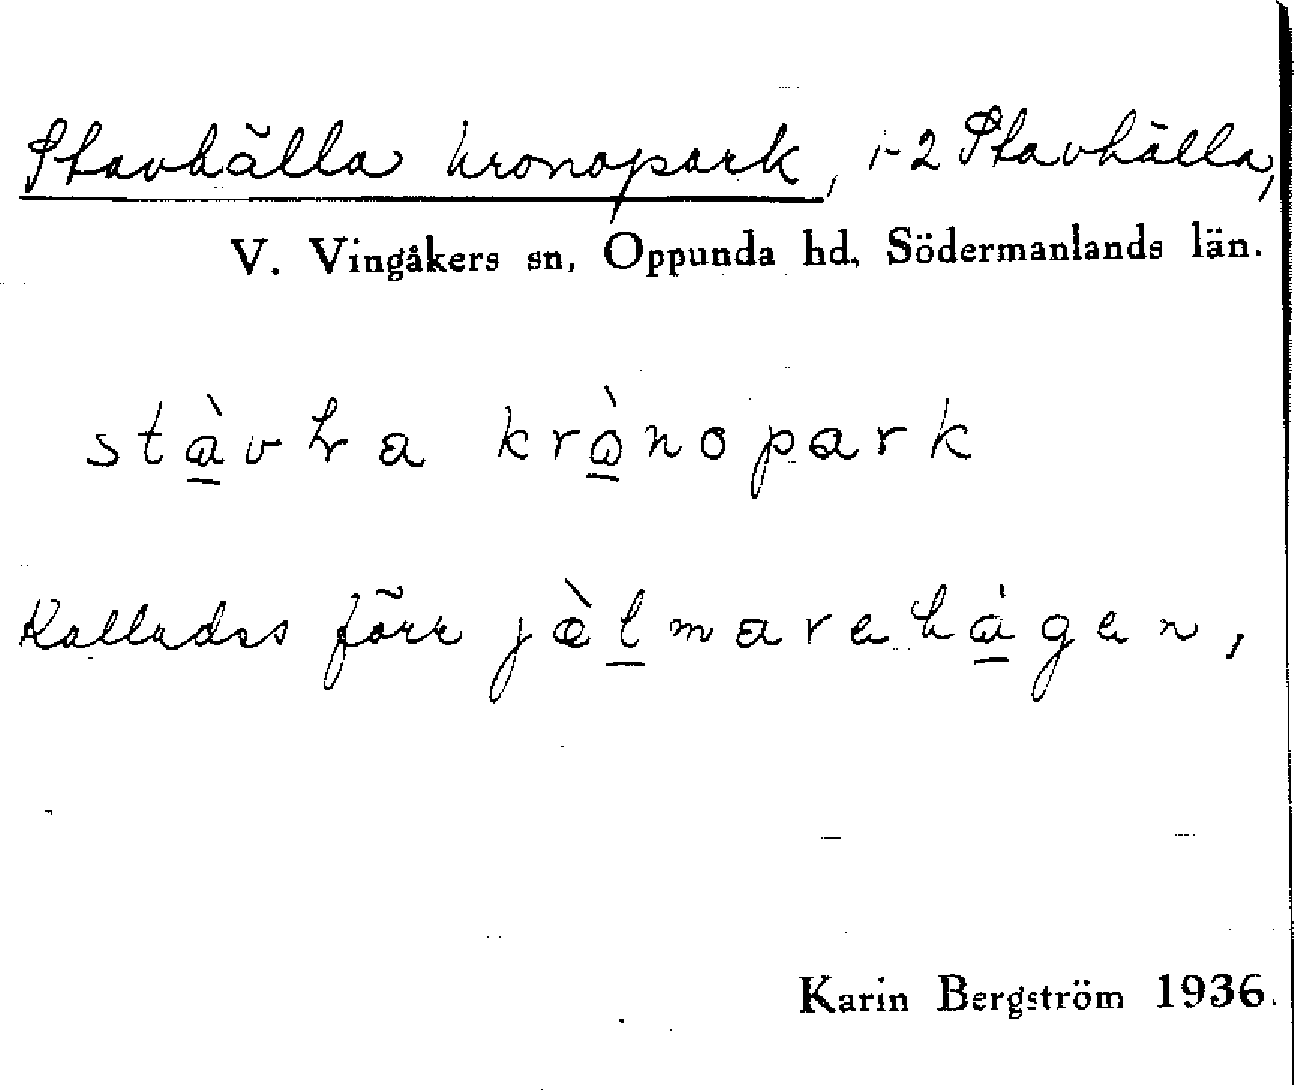 Stavhälla kronopark, 1-2 Stavhälla,
V. Vingåkers sn, Oppunda hd, Södermanlands län.
kr<u>ò</u>nopark
Kallades förr
Karin Bergström 1936.